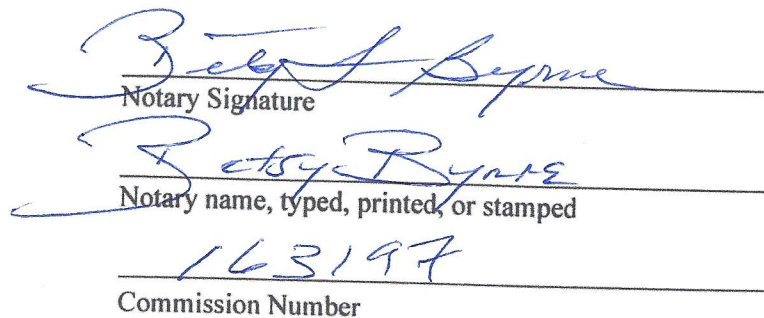 Betsy L Byrne
Notary Signature
Betsy Byrne
Notary name, typed, printed, or stamped
163197
Commission Number